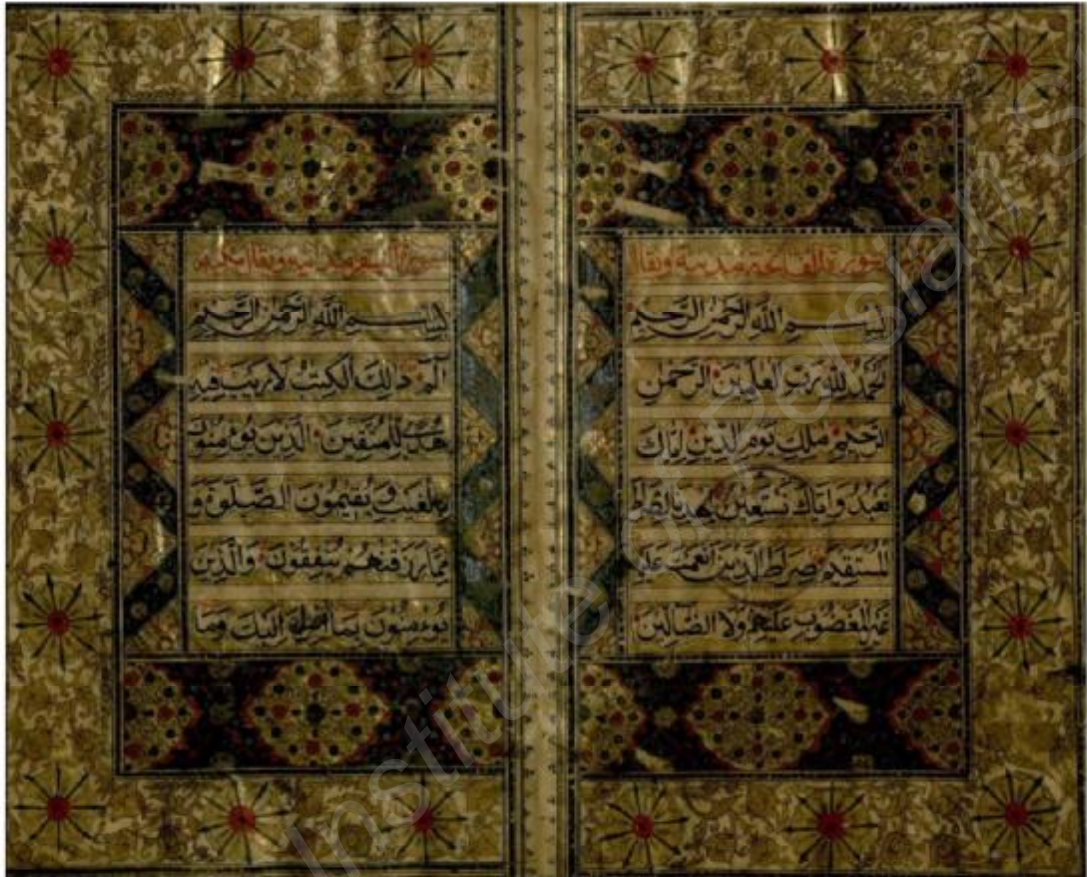 سورة الفاتحة مدنية ويقال
بسم الله الرحمن الرحيم
الحمد لله رب العلمين الرحمن
الرحيم ملك يوم الدين اياك
نعبد واياك نستعين اهدنا الصرا
المستقيم صراط الذين انعمت علي
غير المغضوب عليهم ولا الضالين
سورة البقر مدنية ويقال مكية
بسم الله الرحمن الرحيم
الم ذالك الكتب لا ريب فيه
هدى للمتقين الذين يؤمنون
بالغيب ويقيمون الصلوة و
مما رزقنهم ينفقون والذين
يؤمنون بما انزل اليك وما
Institute of Persian S